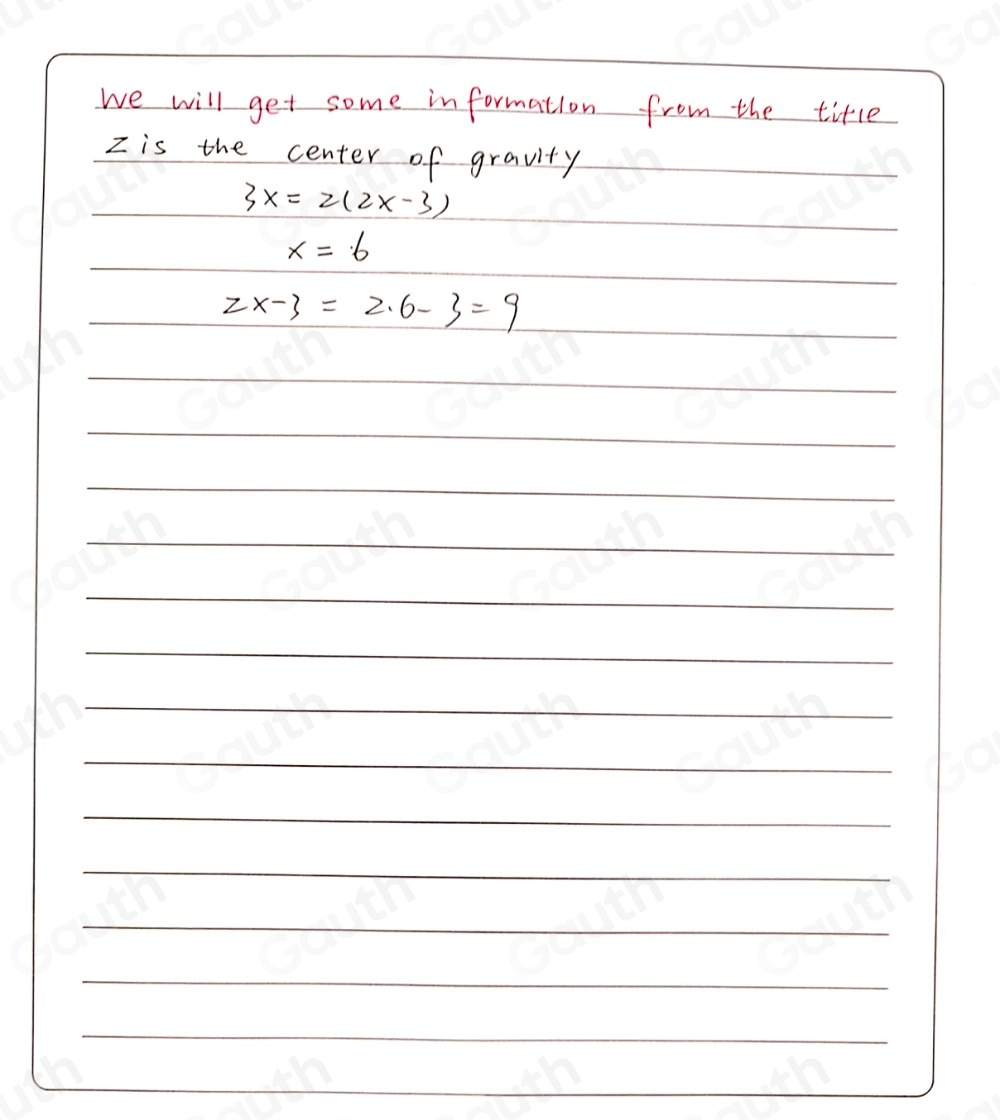 We will get some information from the title
Z is the center of gravity
3x = 2(2x-3)
x = 6
2x-3 = 2·6-3 = 9